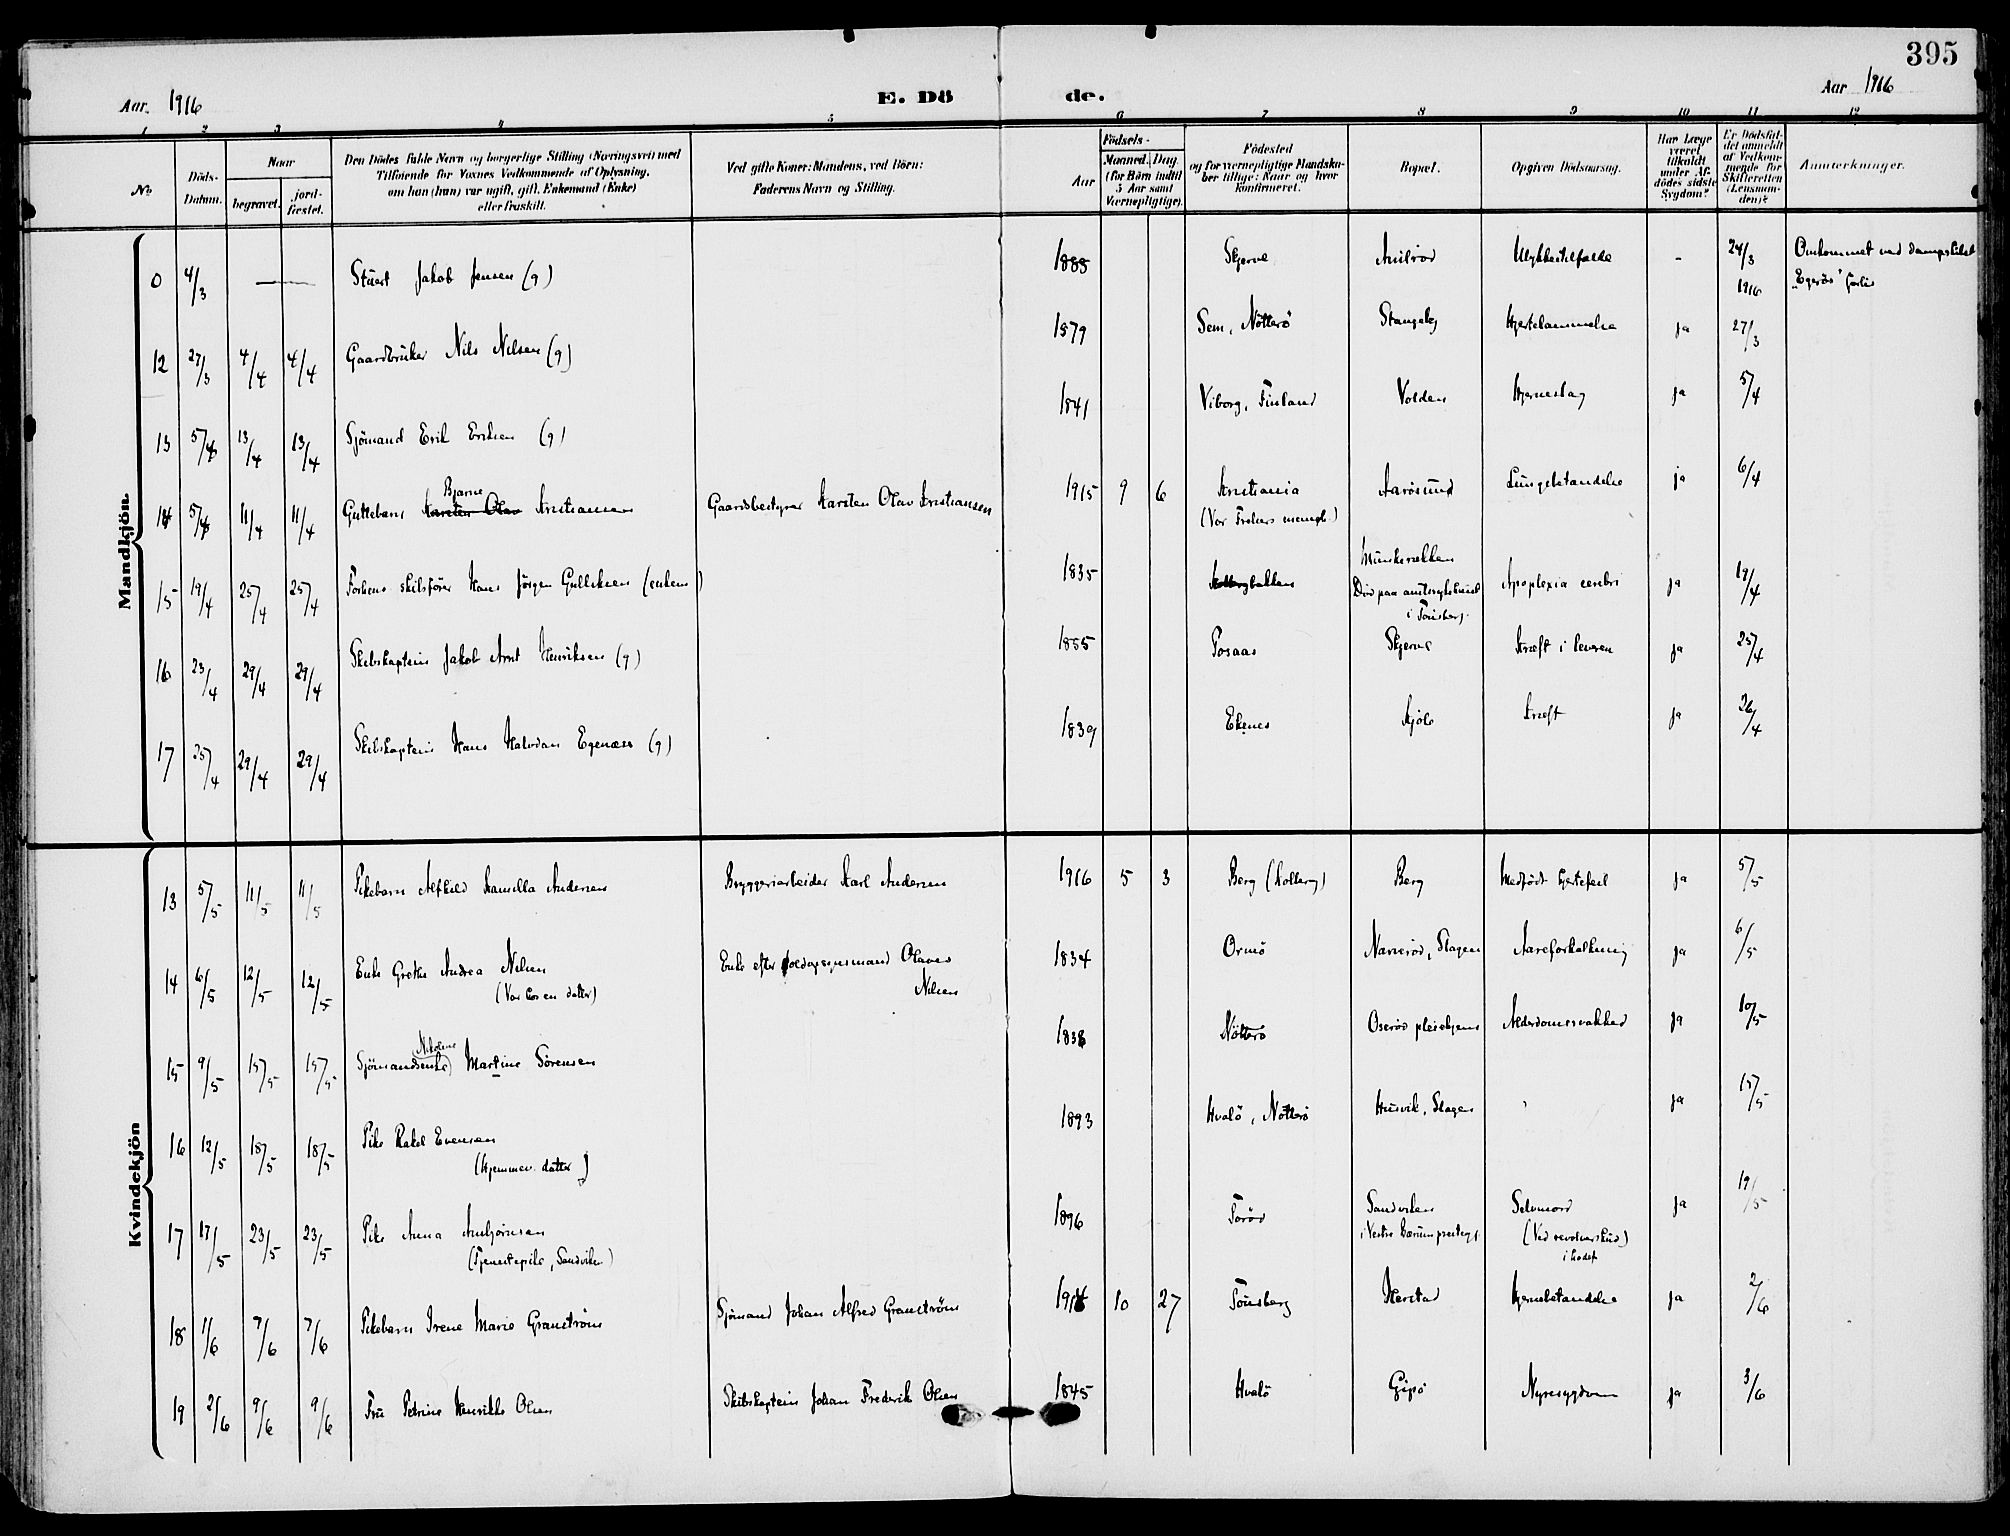 395
Aar. 1916
E. Dö
de.
Aar 1916
1 2 3 4 5 6 7 8 9 10 11 12
No
Döds-
Datum.
Naar
begravet.
jord-
fæstet.
Den Dödes fulde Navn og borgerlige Stilling (Næringsvei) med
Tilföiende for Voxnes Vedkommende af Oplysning,
om han (hun) var ugift, gift, Enkemand (Enke)
eller fraskilt.
Ved gifte Koner: Mandens, ved Börn:
Faderens Navn og Stilling.
Aar
Födsels-
Maaned. Dag.
(for Börn indtil
5 Aar samt
Værnepligtige).
Födested
og for værnepligtige Mandska-
ber tillige: Naar og hvor
konfirmeret.
Bopæl.
Opgiven Dödsaarsag.
Har Læge
været
tilkaldt
under Af-
dödes sidste
Sygdom?
Er Dödsfal-
det anmeldt
af Vedkom-
mende for
Skifteretten
(Lensman-
den)?
Anmærkninger.
Mandkjön.
0 4/3 — Stuert Jakob Jensen (g) 1888 Skjerve Ulykkestilfælde - 24/3 1916 Omkommet ved dampskibet
"Egerös" forlis
12 27/3 4/4 4/4 Gaardbruker Nils Nilsen (g) 1879 Sem, Nötterö Stangeby Hjertelammelse ja 27/3
13 5/4 13/4 13/4 Sjömand Erik Eriksen (g) 1841 Viborg, Finland Volden Hjerneslag ja 5/4
14 5/4 11/4 11/4 Guttebarn Karsten Olav Bjarne Kristiansen Gaardsbestyrer Karsten Olav Kristiansen 1915 9 6 Kristiania Aarösund Lungebetændelse ja 6/4
(Vor Frelsers menigh.)
15 19/4 25/4 25/4 Forhenv. skibsförer Hans Jörgen Gulliksen (enkem) 1835 Munkerekken Apoplexia cerebri ja 19/4
Död paa amtssykehuset
i Tönsberg.
16 23/4 29/4 29/4 Skibskaptein Jakob Arnt Henriksen (g) 1855 Skjerve Kræft i leveren ja 25/4
17 25/4 29/4 29/4 Skibskaptein Hans Halvdan Egenæss (g) 1839 Ekenes Kjölö Kræft ja 26/4
Kvindekjön
13 5/5 11/5 11/5 Pikebarn Alfhild Kamilla Andersen Bryggeriarbeider Karl Andersen 1916 5 3 Berg (Kolberg) Berg Medfödt hjertefeil ja 5/5
14 6/5 12/5 12/5 Enke Grethe Andrea Nilsen Enke efter Olaves
(Var hos en datter) Nilsen 1834 Ormö Narverød, Slagen Aareforkalkning ja 6/5
15 9/5 15/5 15/5 Sjömandsenke Nikoline Martine Sörensen 1838 Nötterö Oseröd pleiehjem Alderdomssvakhed ja 10/5
16 12/5 18/5 18/5 Pike Rakel Evensen
(hjemmev. datter) 1893 Hvalö, Nötterö Husvik, Slagen ja 15/5
17 17/5 23/5 23/5 Pike Anna
(Tjenestepike, Sandviken) 1896 Toröd Sandviken Selvmord ja 19/5
i Vestre Bærum prestegj. (Ved revolverskud)
i hodet
18 1/6 7/6 7/6 Pikebarn Irene Marie Granström Sjömand Johan Alfred Granström 10 27 Tönsberg Herstad Hjernebetændelse ja 2/6
19 2/6 9/6 9/6 Fru Petrine Henrikke Olsen Skibskaptein Johan Frederik Olsen 1845 Hvalö Gipö Nyresygdom ja 3/6